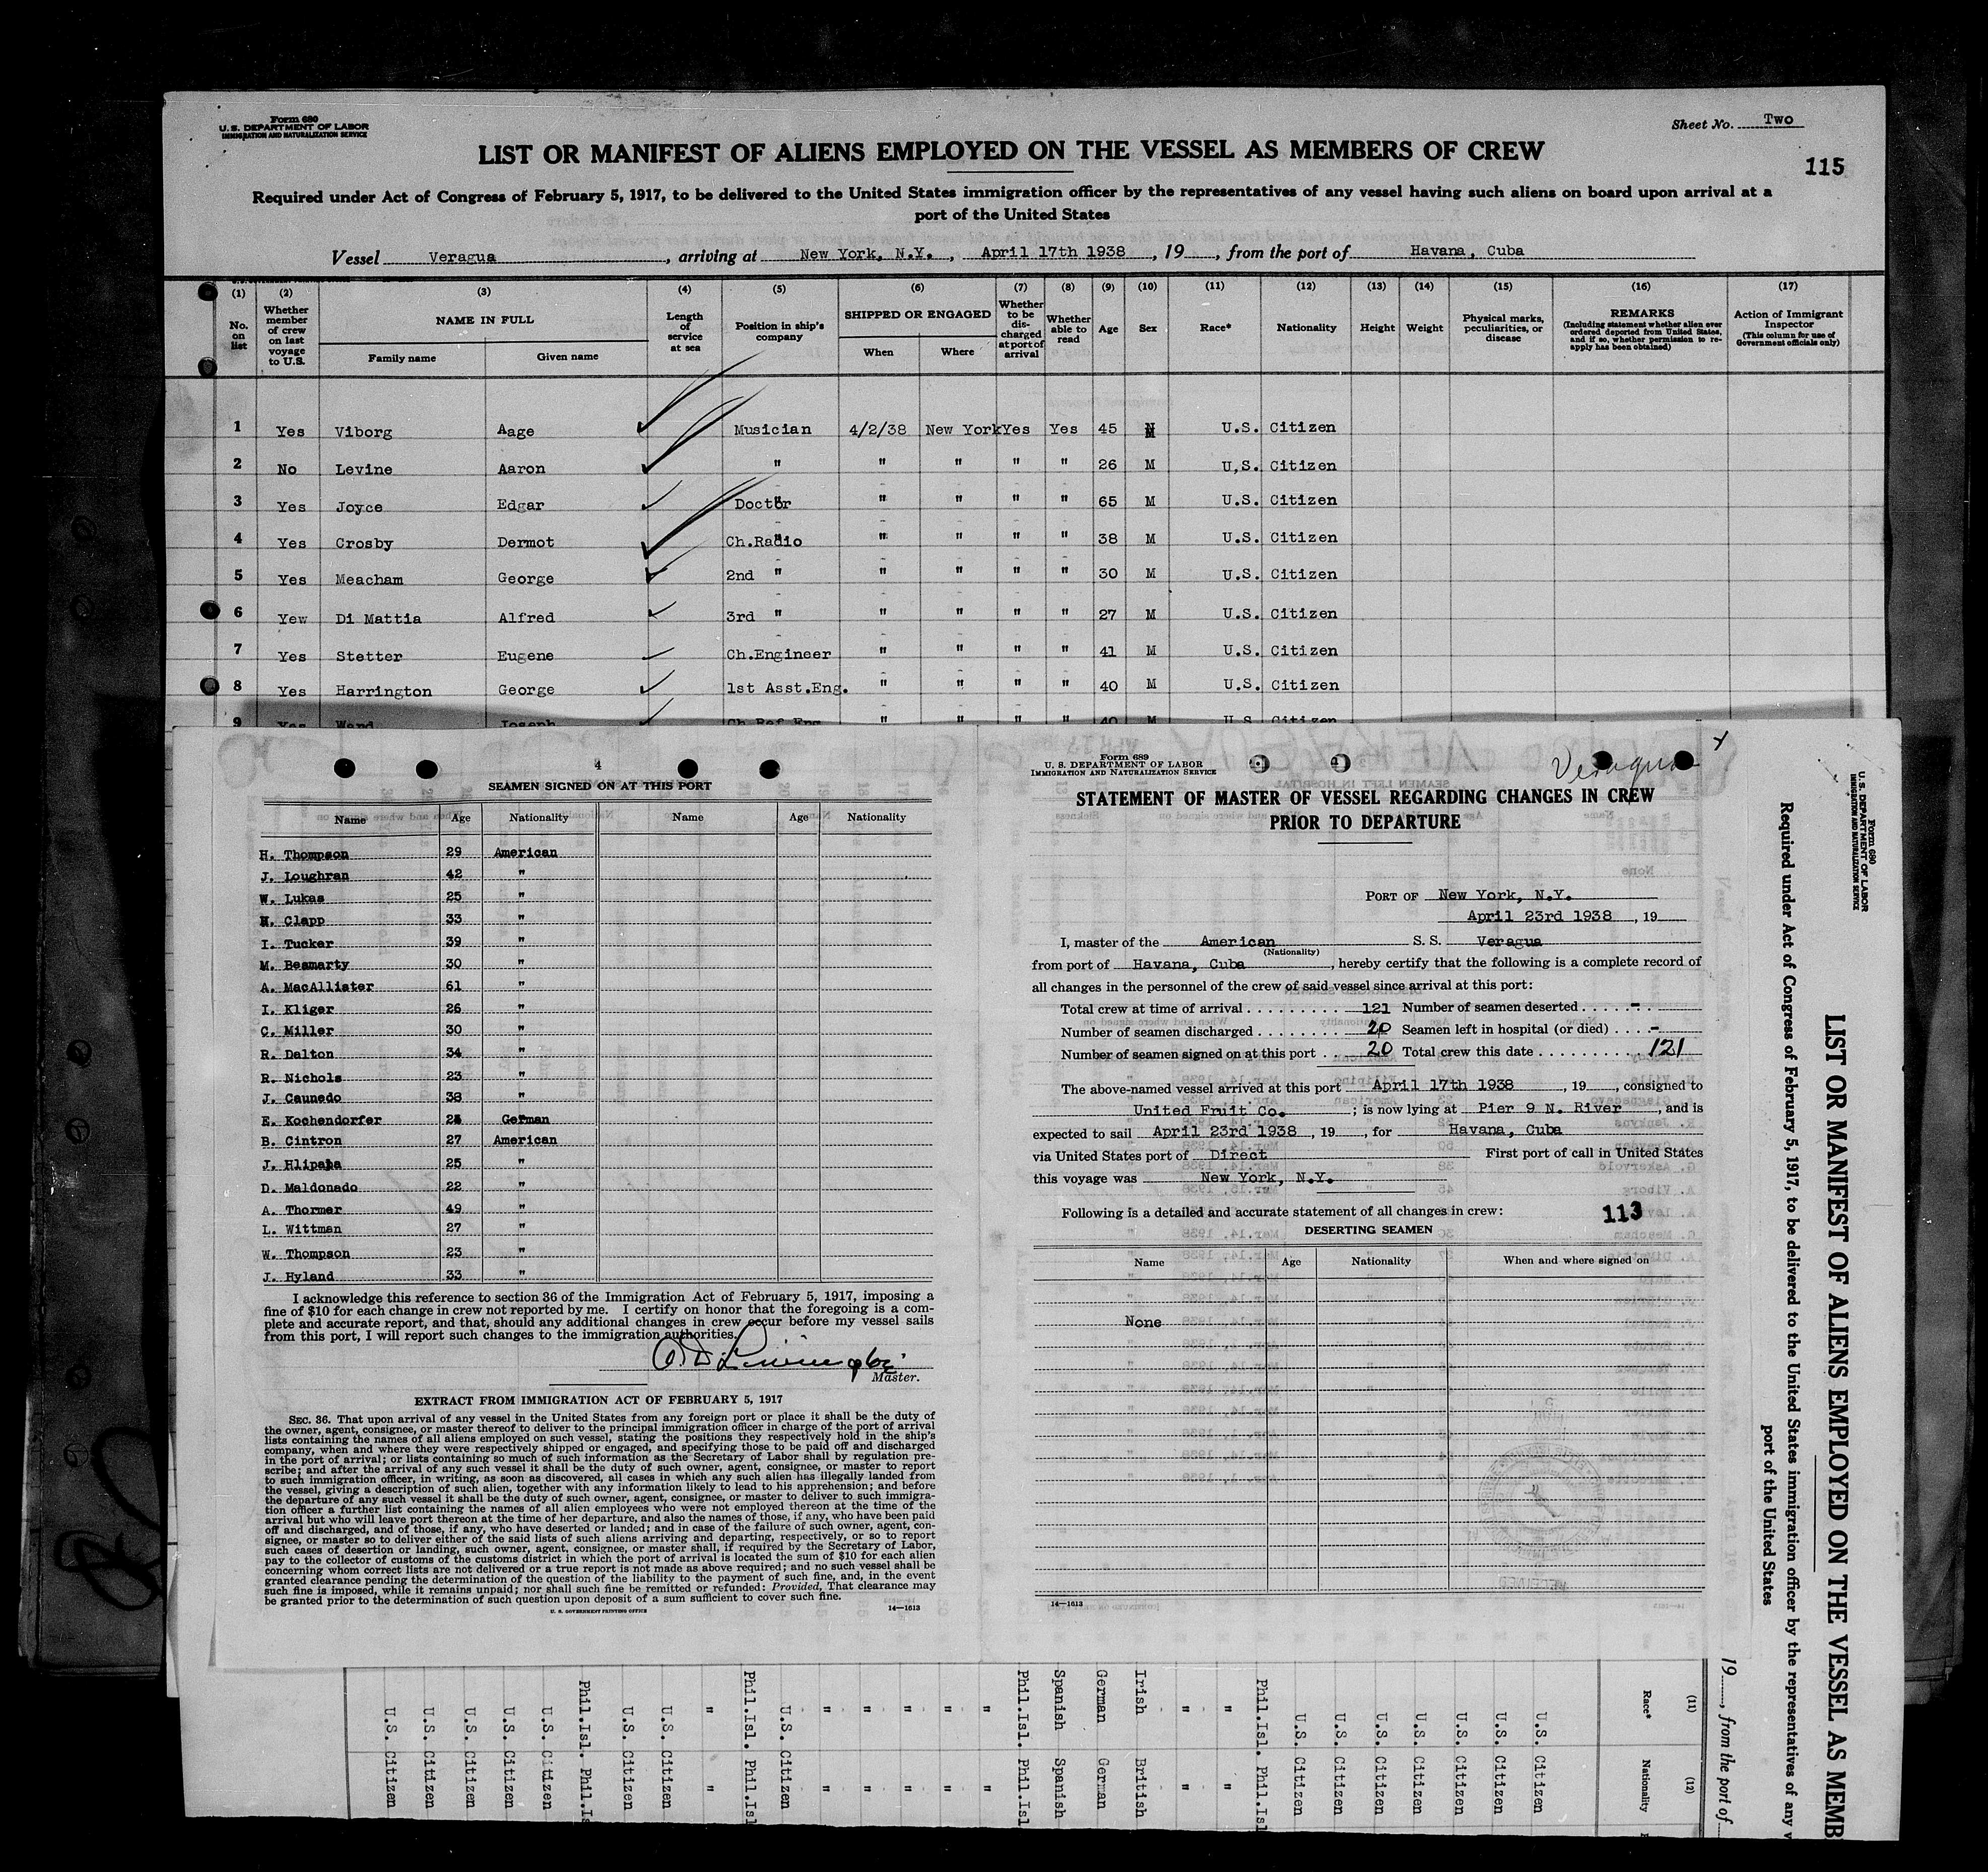 Form 680
U. S. DEPARTMENT OF LABOR
IMMIGRATION AND NATURALIZATION SERVICE
Sheet No. Two
115
LIST OR MANIFEST OF ALIENS EMPLOYED ON THE VESSEL AS MEMBERS OF CREW
Required under Act of Congress of February 5, 1917, to be delivered to the United States immigration officer by the representatives of any vessel having such aliens on board upon arrival at a
port of the United States
Vessel Veragua, arriving at New York, N.Y., April 17th 1938, 19, from the port of Havana, Cuba
(1) (2) (3) (4) (5) (6) (7) (8) (9) (10) (11) (12) (13) (14) (15) (16) (17)
No. on list
Whether member of crew on last voyage to U.S.
NAME IN FULL
Family name Given name
Length of service at sea
Position in ship's company
SHIPPED OR ENGAGED
When Where
Whether to be discharged at port of arrival
Whether able to read
Age Sex Race* Nationality Height Weight
Physical marks, peculiarities, or disease
REMARKS
(Including statement whether alien ever ordered deported from United States, and if so, whether permission to re-apply has been obtained)
Action of Immigrant Inspector
(This column for use of Government officials only)
1 Yes Viborg Aage Musician 4/2/38 New York Yes Yes 45 M U.S. Citizen
2 No Levine Aaron " " " " " 26 M U,S. Citizen
3 Yes Joyce Edgar Doctor " " " " 65 M U.S. Citizen
4 Yes Crosby Dermot Ch.Radio " " " " 38 M U.S. Citizen
5 Yes Meacham George 2nd " " " " " 30 M U.S. Citizen
6 Yew Di Mattia Alfred 3rd " " " " " 27 M U.S. Citizen
7 Yes Stetter Eugene Ch.Engineer " " " " 41 M U.S. Citizen
8 Yes Harrington George 1st Asst.Eng. " " " " 40 M U.S. Citizen
9 Yes Ward Joseph Ch Ref Eng " " " " 40 M U.S. Citizen
4
SEAMEN SIGNED ON AT THIS PORT
Name Age Nationality Name Age Nationality
H. Thompson 29 American
J. Loughran 42 "
W. Lukas 25 "
H. Clapp 33 "
I. Tucker 39 "
M. Beamarty 30 "
A. MacAllister 61 "
I. Kliger 26 "
C. Miller 30 "
R. Dalton 34 "
R. Nichols 23 "
J. Caunedo 38 "
E. Kochendorfer German
B. Cintron 27 American
J. 25 "
D. Maldonado 22 "
A. Thormer 49 "
L. Wittman 27 "
W. Thompson 23 "
J. Hyland 33 "
I acknowledge this reference to section 36 of the Immigration Act of February 5, 1917, imposing a
fine of $10 for each change in crew not reported by me. I certify on honor that the foregoing is a com-
plete and accurate report, and that, should any additional changes in crew occur before my vessel sails
from this port, I will report such changes to the immigration authorities.
Master.
EXTRACT FROM IMMIGRATION ACT OF FEBRUARY 5, 1917
SEC. 36. That upon arrival of any vessel in the United States from any foreign port or place it shall be the duty of
the owner, agent, consignee, or master thereof to deliver to the principal immigration officer in charge of the port of arrival
lists containing the names of all aliens employed on such vessel, stating the positions they respectively hold in the ship's
company, when and where they were respectively shipped or engaged, and specifying those to be paid off and discharged
in the port of arrival; or lists containing so much of such information as the Secretary of Labor shall by regulation pre-
scribe; and after the arrival of any such vessel it shall be the duty of such owner, agent, consignee, or master to report
to such immigration officer, in writing, as soon as discovered, all cases in which any such alien has illegally landed from
the vessel, giving a description of such alien, together with any information likely to lead to his apprehension; and before
the departure of any such vessel it shall be the duty of such owner, agent, consignee, or master to deliver to such immigra-
tion officer a further list containing the names of all alien employees who were not employed thereon at the time of the
arrival but who will leave port thereon at the time of her departure, and also the names of those, if any, who have been paid
off and discharged, and of those, if any, who have deserted or landed; and in case of the failure of such owner, agent, con-
signee, or master so to deliver either of the said lists of such aliens arriving and departing, respectively, or so to report
such cases of desertion or landing, such owner, agent, consignee, or master shall, if required by the Secretary of Labor,
pay to the collector of customs of the customs district in which the port of arrival is located the sum of $10 for each alien
concerning whom correct lists are not delivered or a true report is not made as above required; and no such vessel shall be
granted clearance pending the determination of the question of the liability to the payment of such fine, and, in the event
such fine is imposed, while it remains unpaid; nor shall such fine be remitted or refunded: Provided, That clearance may
be granted prior to the determination of such question upon deposit of a sum sufficient to cover such fine.
U. S. GOVERNMENT PRINTING OFFICE 14—1613
Form 689
U. S. DEPARTMENT OF LABOR
IMMIGRATION AND NATURALIZATION SERVICE
Veragua
STATEMENT OF MASTER OF VESSEL REGARDING CHANGES IN CREW
PRIOR TO DEPARTURE
PORT OF New York, N.Y.
April 23rd 1938, 19
I, master of the American S. S. Veragua
(Nationality)
from port of Havana, Cuba, hereby certify that the following is a complete record of
all changes in the personnel of the crew of said vessel since arrival at this port:
Total crew at time of arrival 121 Number of seamen deserted -
Number of seamen discharged 20 Seamen left in hospital (or died) -
Number of seamen signed on at this port 20 Total crew this date 121
The above-named vessel arrived at this port April 17th 1938, 19, consigned to
United Fruit Co.; is now lying at Pier 9 N. River, and is
expected to sail April 23rd 1938, 19, for Havana, Cuba
via United States port of Direct First port of call in United States
this voyage was New York, N.Y.
Following is a detailed and accurate statement of all changes in crew: 113
DESERTING SEAMEN
Name Age Nationality When and where signed on
None
14—1613
Form 680
U. S. DEPARTMENT OF LABOR
IMMIGRATION AND NATURALIZATION SERVICE
LIST OR MANIFEST OF ALIENS EMPLOYED ON THE VESSEL AS MEMB
Required under Act of Congress of February 5, 1917, to be delivered to the United States immigration officer by the representatives of any v
port of the United States
19, from the port of
(11) (12)
Race* Nationality
U.S. Citizen
U.S. Citizen
U.S. Citizen
U.S. Citizen
U.S. Citizen
U.S. Citizen
U.S. Citizen
Phil.Isl. Phil.Isl
" "
" "
Irish British
German German
Spanish Spanish
Phil.Isl. Phil.Isl
" "
" "
" "
" "
" "
U.S. Citizen
Phil.Isl. Phil.Isl
" "
U.S. Citizen
U.S. Citizen
Phil.Isl. Phil.Is
U.S. Citizen
U.S. Citizen
U.S. Citizen
U.S. Citizen
U.S. Citizen